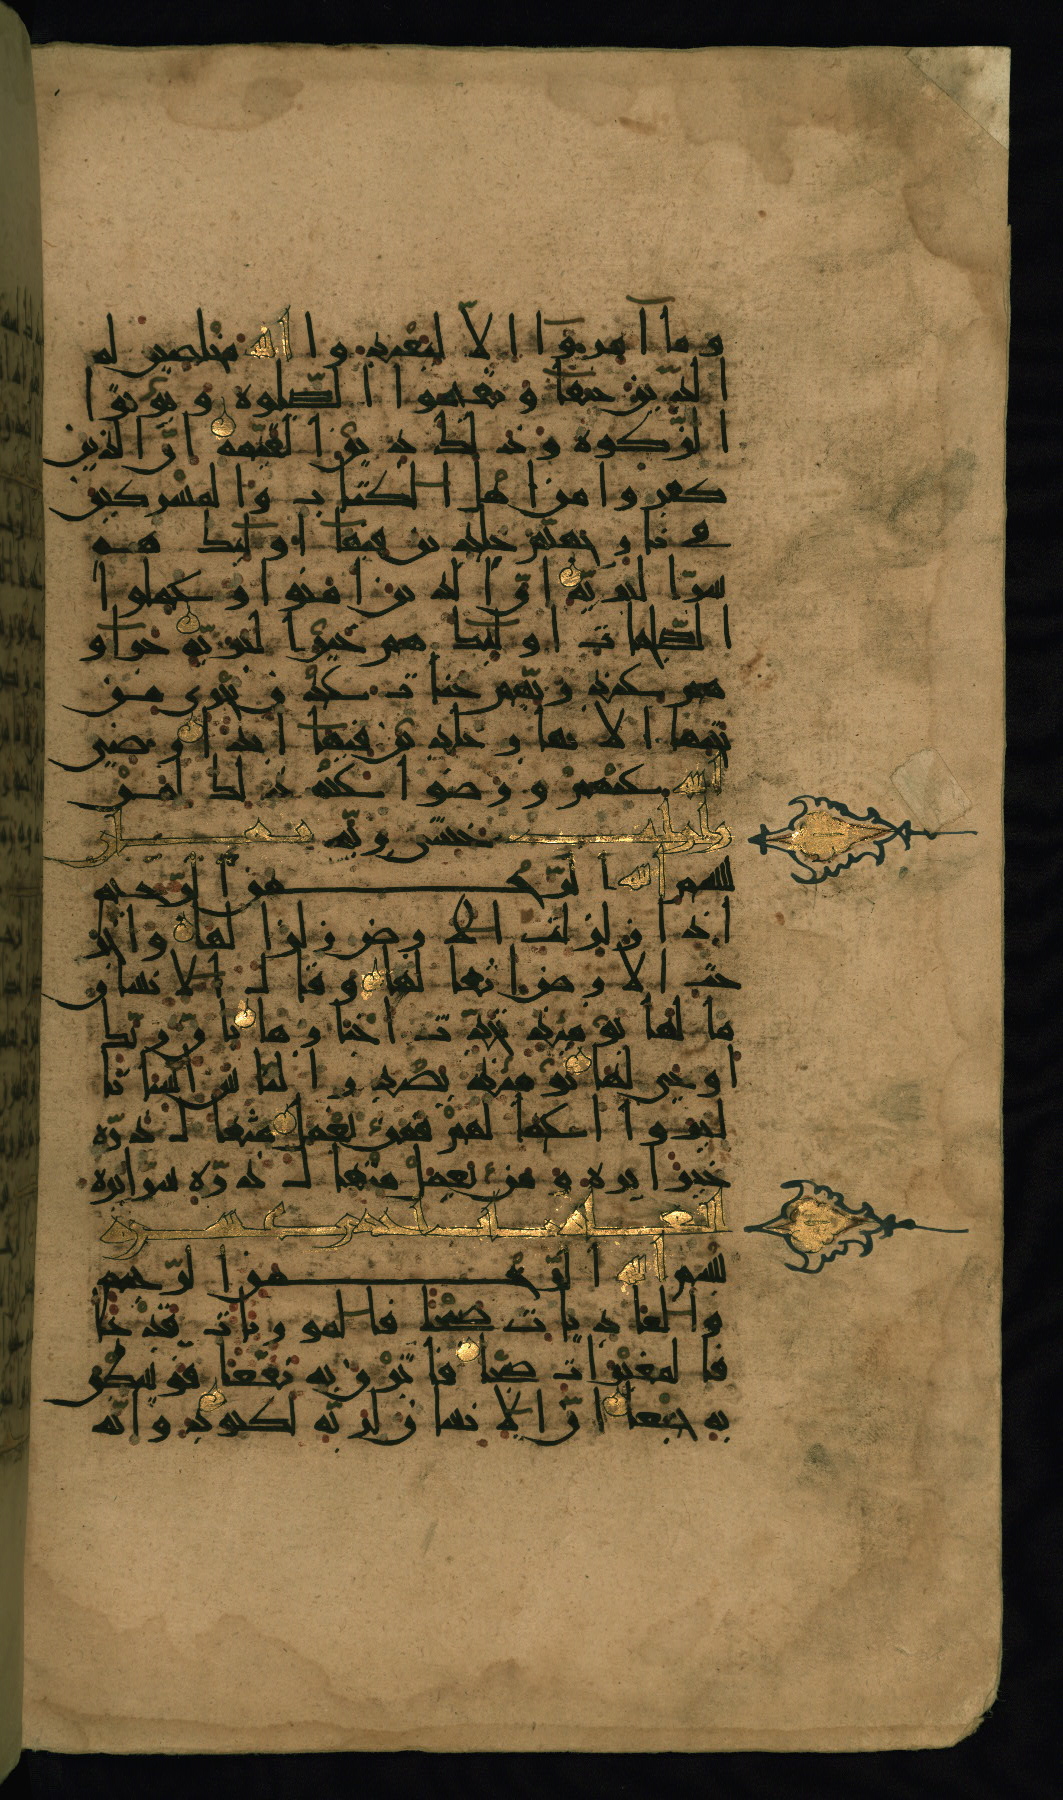 وما امروا الا ليعبدوا الله مخلصين له
الدين حنفا ويقيموا الصلوة ويوتوا
الزكوة وذلك دين القيمة ان الذين
كفروا من اهل الكتاب والمشركين
في نار جهنم خلدين فيها اوليك هم
شر البرية ان الذين امنوا وعملوا
الصلحات اوليك هم خير البرية جزاو
هم عند ربهم جنات عدن تجري من
تحتها الانهار خلدين فيها ابدا رضي
الله عنهم ورضوا عنه ذلك لمن
خشي ربه
بسم الله الرحمن الرحيم
اذا زلزلت الارض زلزالها واخر
جت الارض اثقالها وقال الانسان
ما لها يوميذ تحدث اخبارها بان ربك
اوحى لها يوميذ يصدر الناس اشتاتا
ليروا اعمالهم فمن يعمل مثقال ذرة
خيرا يره ومن يعمل مثقال ذرة شرا يره
بسم الله الرحمن الرحيم
والعاديات ضبحا فالموريات قدحا
فالمغيرات صبحا فاثرن به نقعا فوسطن
به جمعا ان الانسان لربه لكنود وانه